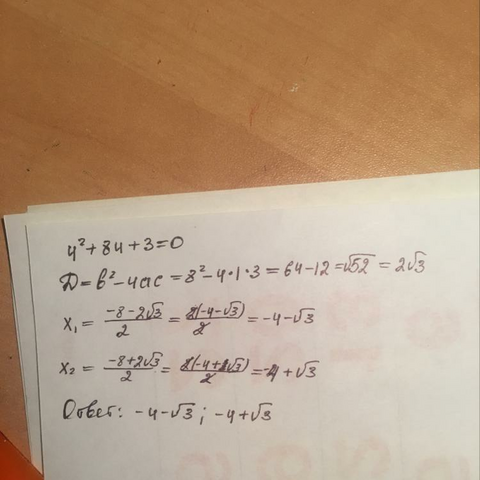 y²+8y+3=0
D=b²-4ac=8²-4·1·3=64-12=√52=2√3
x₁=(-8-2√3)/2=2(-4-√3)/2=-4-√3
x₂=(-8+2√3)/2=2(-4+√3)/2=-4+√3
Ответ: -4-√3; -4+√3